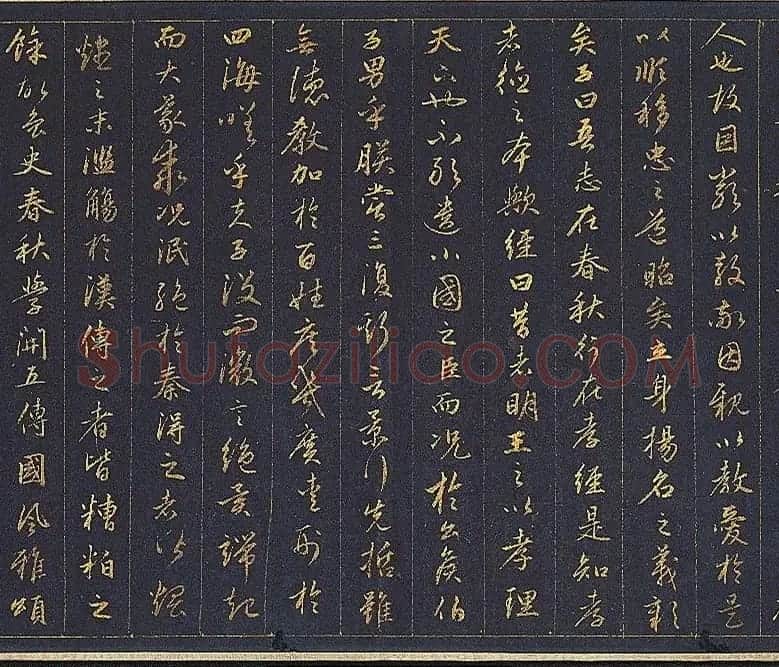 人也故因嚴以教敬因親以教愛於是
以順移忠之道昭矣立身揚名之義彰
矣子曰吾志在春秋行在孝經是知孝
者德之本歟經曰昔者明王之以孝理
天下也不敢遺小國之臣而況於公侯伯
子男乎朕嘗三復斯言景行先哲雖
無德教加於百姓庶幾廣愛刑於
四海嗟乎夫子沒而微言絕異端起
而大義乖況泯絕於秦得之者皆煨
燼之末濫觴於漢傳之者皆糟粕之
餘故魯史春秋學開五傳國風雅頌
Shufaziliao.COM